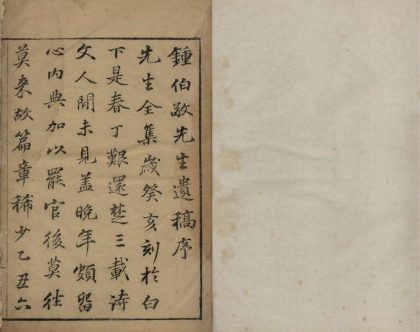 鍾伯敬先生遺稿序
先生全集歲癸亥刻於白
下是春丁艱還楚三載詩
文人間未見蓋晚年頗留
心內典加以罷官後莫往
莫來故篇章稀少乙丑六